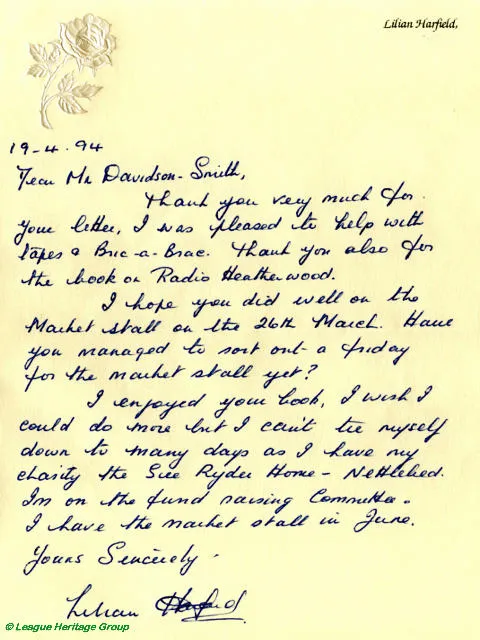 Lilian Harfield,
19-4.94
Dear Mr Davidson-Smith,
Thank you very much for
your letter, I was pleased to help with
tapes & Bric-a-Brac. Thank you also for
the book on Radio Heatherwood.
I hope you did well on the
Market stall on the 26th March. Have
you managed to sort out a friday
for the market stall yet?
I enjoyed your book, I wish I
could do more but I can't tie myself
down to many days as I have my
charity the Sue Ryder Home - Nettlebed.
I'm on the fund raising Committee.
I have the market stall in June.
Yours Sincerely.
Lilian Harfield.
© League Heritage Group